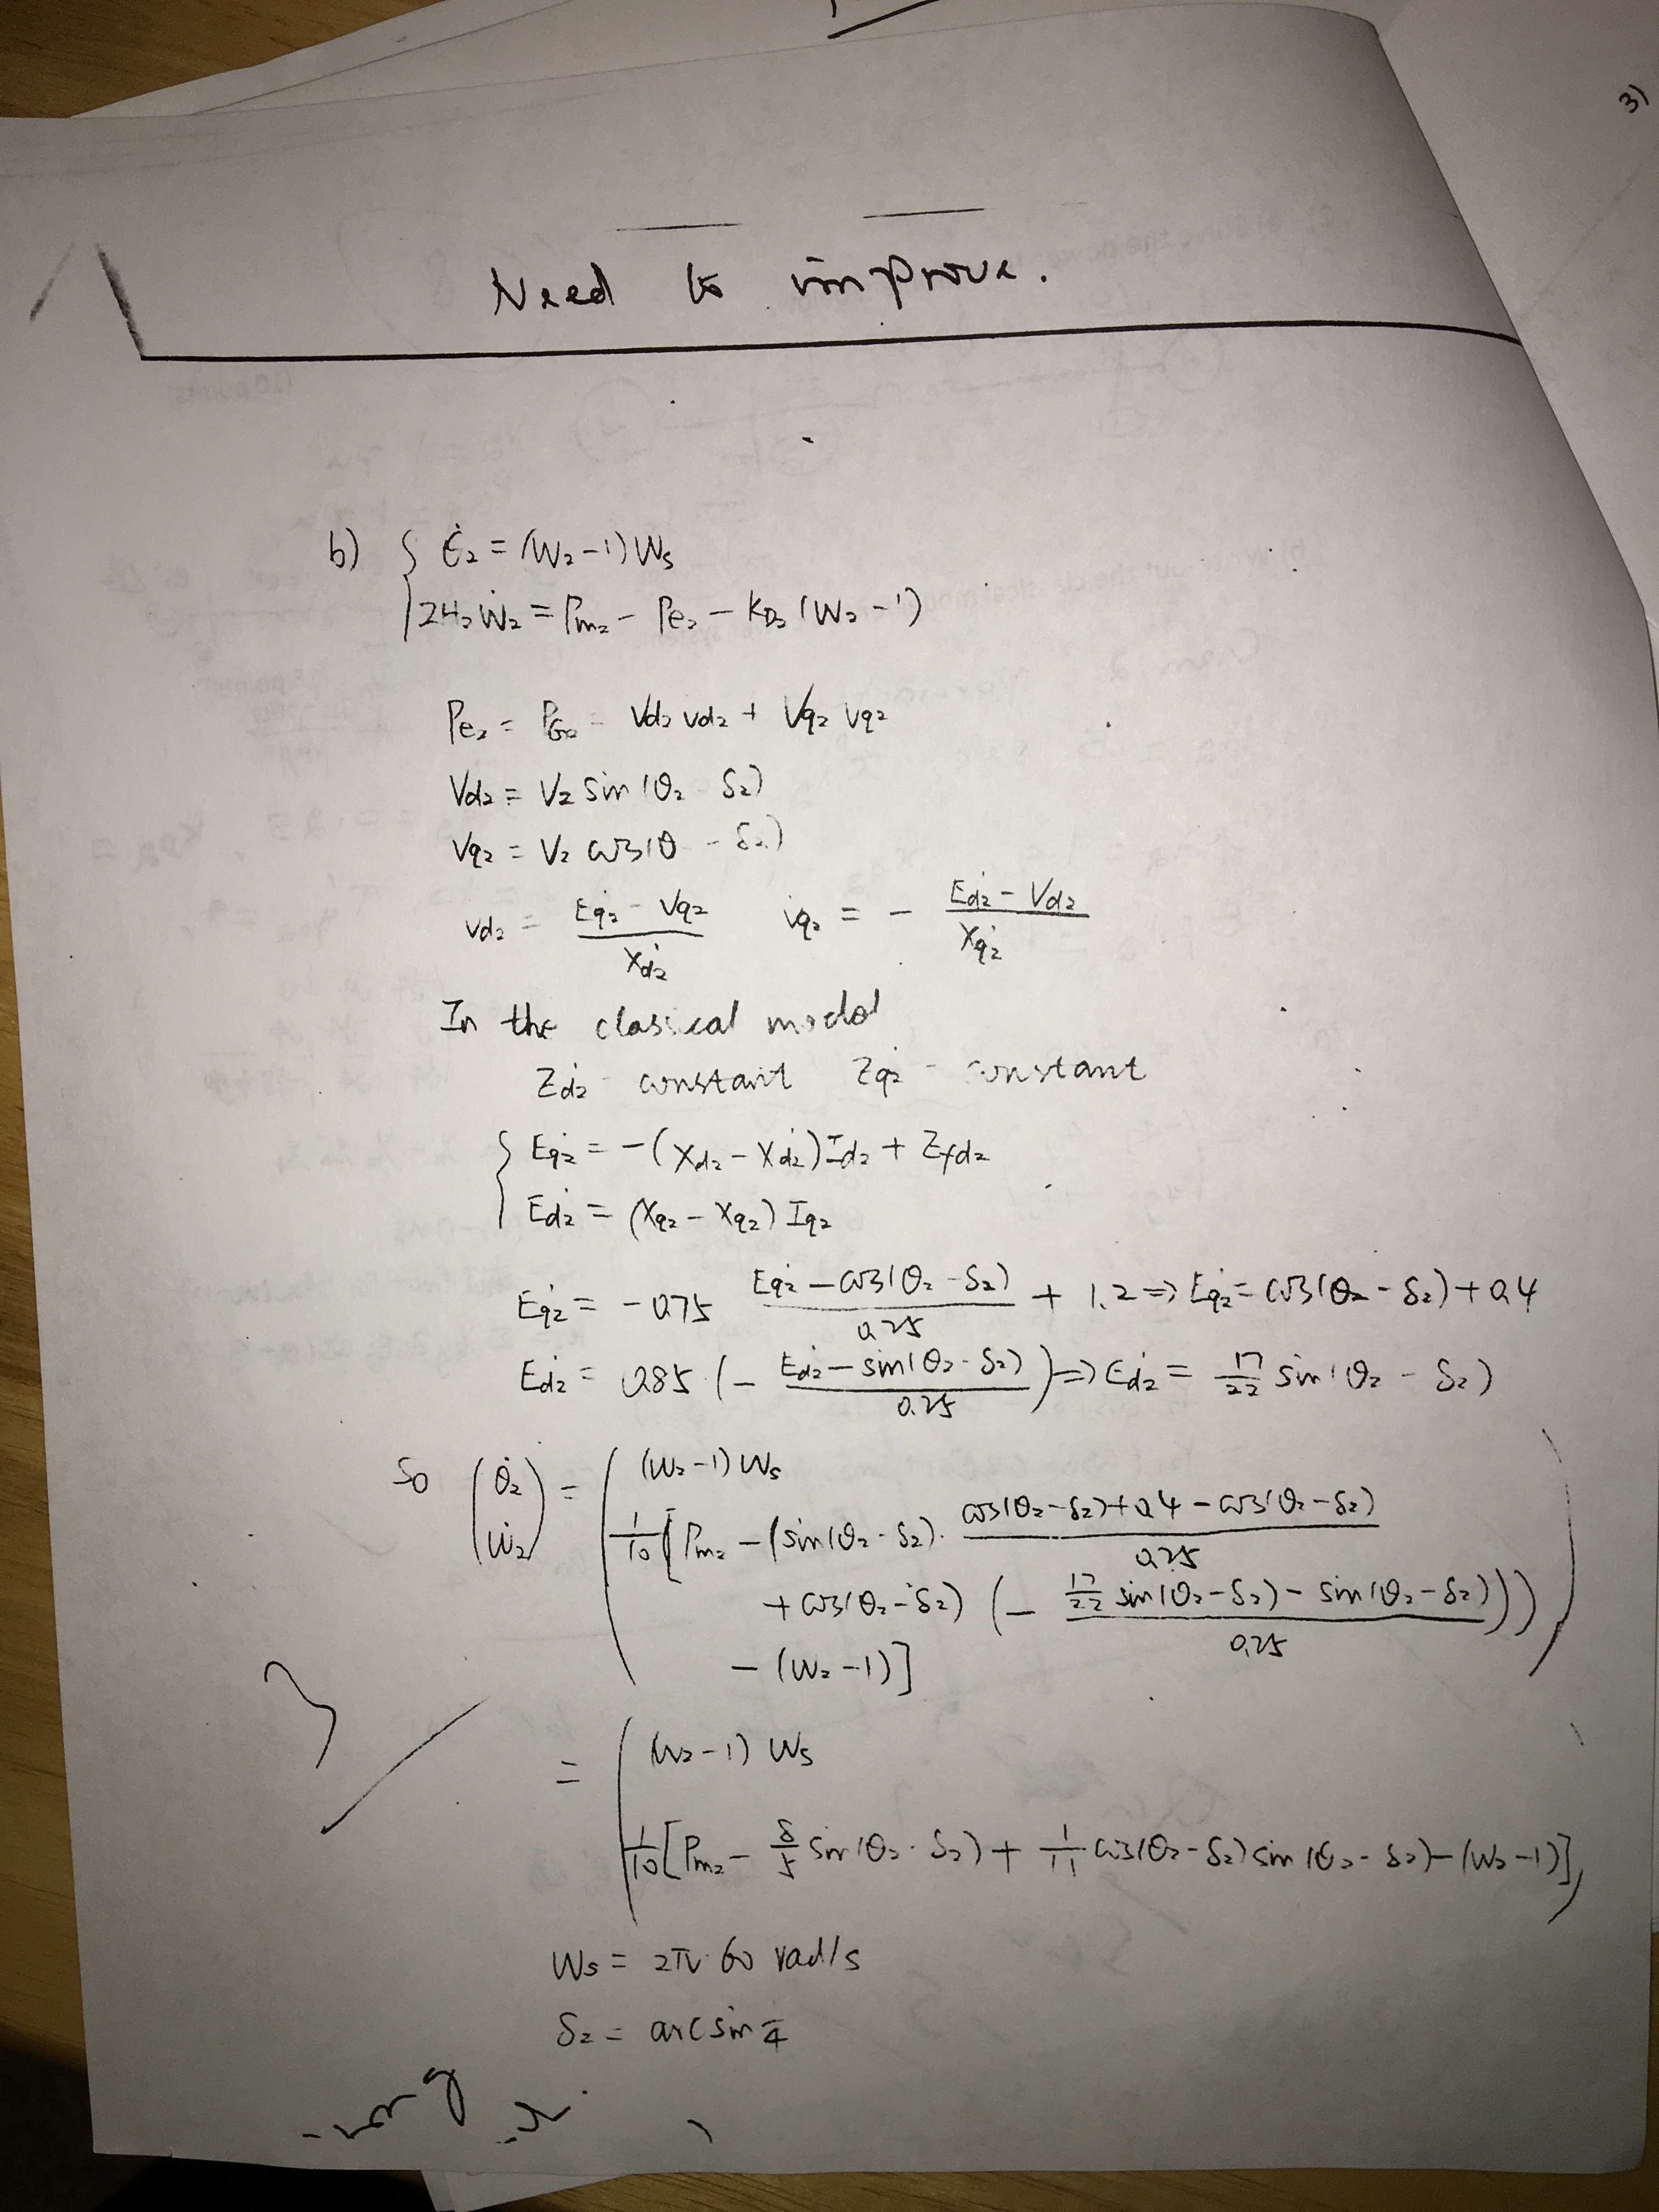 3)
Need to improve.
b) { Ė₂ = (W₂-1) Ws
2H₂ Ẇ₂ = Pm₂ - Pe₂ - KD₂ (W₂-1)
Pe₂ = PG₂ = Vd₂ vd₂ + Vq₂ vq₂
Vd₂ = V₂ sin(θ₂ - δ₂)
Vq₂ = V₂ cos(θ - δ₂)
vd₂ = (Eq₂' - Vq₂) / Xd₂' iq₂ = - (Ed₂' - Vd₂) / Xq₂'
In the classical model
Ed₂' - constant Eq₂' - constant
{ Eq₂' = -(Xd₂ - Xd₂') Id₂ + Efd₂
Ed₂' = (Xq₂ - Xq₂) Iq₂
Eq₂' = -0.75 (Eq₂' - cos(θ₂ - δ₂)) / 0.25 + 1.2 => Eq₂' = cos(θ₂ - δ₂) + 0.4
Ed₂' = 0.85 (- (Ed₂' - sin(θ₂ - δ₂)) / 0.25) => Ed₂' = 17/22 sin(θ₂ - δ₂)
So (θ̇₂ = ((W₂-1) Ws
Ẇ₂) 1/10 [Pm₂ - (sin(θ₂ - δ₂) · (cos(θ₂ - δ₂) + 0.4 - cos(θ₂ - δ₂)) / 0.25
+ cos(θ₂ - δ₂) (- (17/22 sin(θ₂ - δ₂) - sin(θ₂ - δ₂)) / 0.25))
- (W₂-1)] )
= ( (W₂-1) Ws
1/10 [Pm₂ - 8/5 sin(θ₂ - δ₂) + 1/11 cos(θ₂ - δ₂) sin(θ₂ - δ₂) - (W₂-1)] )
Ws = 2π·60 rad/s
δ₂ = arcsin